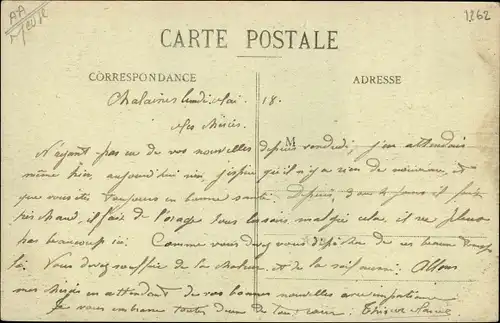 AA
Meuse
1262
CARTE POSTALE
CORRESPONDANCE
ADRESSE
Chalaines lundi soir 18.
Mes
M
N'ayant pas eu de vos nouvelles depuis vendredi, j'en attendais
même hier, aujourd'hui rien, j'espère qu'il n'y a rien de nouveau, et
que vous êtes toujours en bonne santé. Depuis 4 jours il fait
très chaud, il fait de l'orage tous les soirs, malgré cela, il ne pleut
pas beaucoup ici. Comme vous devez vous de ces beaux temps
là. Vous devez souffrir de la chaleur, et de la soif aussi. Allons
mes en attendant de vos bonnes nouvelles avec impatience
Je vous embrasse toutes deux de tout cœur.